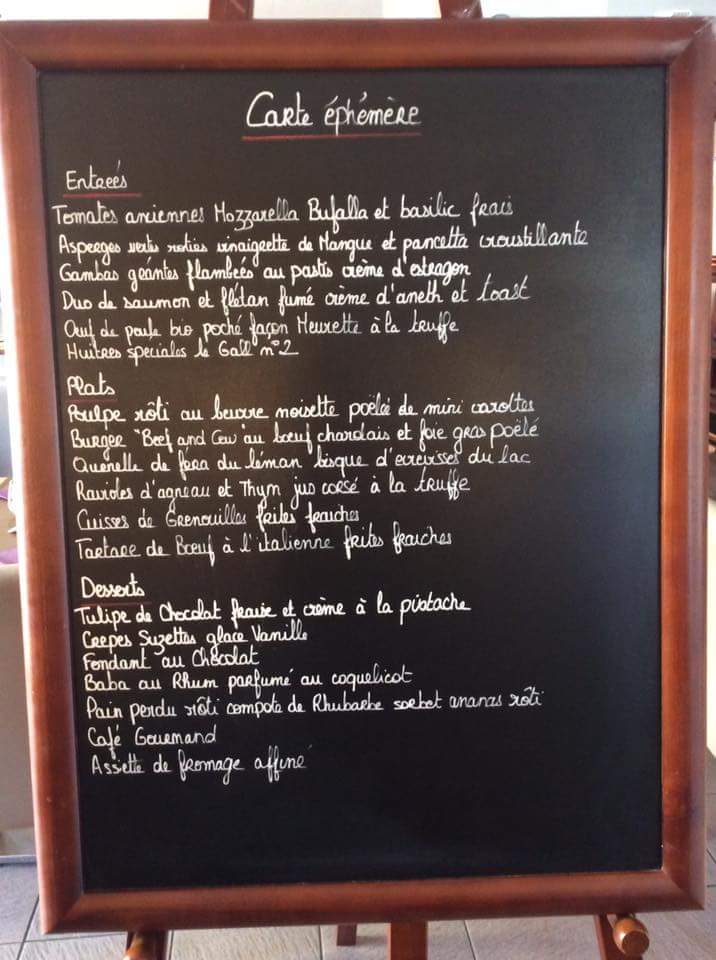 Carte éphémère
Entreés
Tomates anciennes Mozzarella Bufalla et basilic frais
Asperges vertes roties vinaigrette de Mangue et pancetta croustillante
Gambas géantes flambeés au pastis crème d'estragon
Duo de saumon et flétan fumé crème d'aneth et toast
Oeuf de poule bio poché façon Meurette à la truffe
Huitres spéciales le Gall n°2
Plats
Poulpe rôti au beurre noisette poëlée de mini carottes
Burger "Beef and Cow" au bœuf charolais et foie gras poëlé
Quenelle de fera du léman bisque d'ecrevisses du lac
Ravioles d'agneau et Thym jus corsé à la truffe
Cuisses de Grenouilles frites fraiches
Tartare de Bœuf à l'italienne frites fraiches
Desserts
Tulipe de Chocolat fraise et crème à la pistache
Crepes Suzettes glace Vanille
Fondant au Chocolat
Baba au Rhum parfumé au coquelicot
Pain perdu rôti compote de Rhubarbe sorbet ananas rôti
Café Gourmand
Assiette de fromage affiné